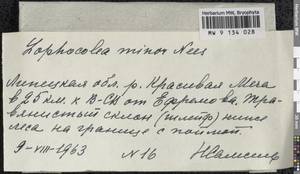 Herbarium MW, Bryophyta
MW 9 134 028
Lophocolea minor Nees
Липецкая обл. р. Красивая Меча
в 25 км. к В-СВ от Ефремова. Тра-
вянистый склон (шлейф) ниже
леса на границе с поймой.
9-VIII-1963 N 16